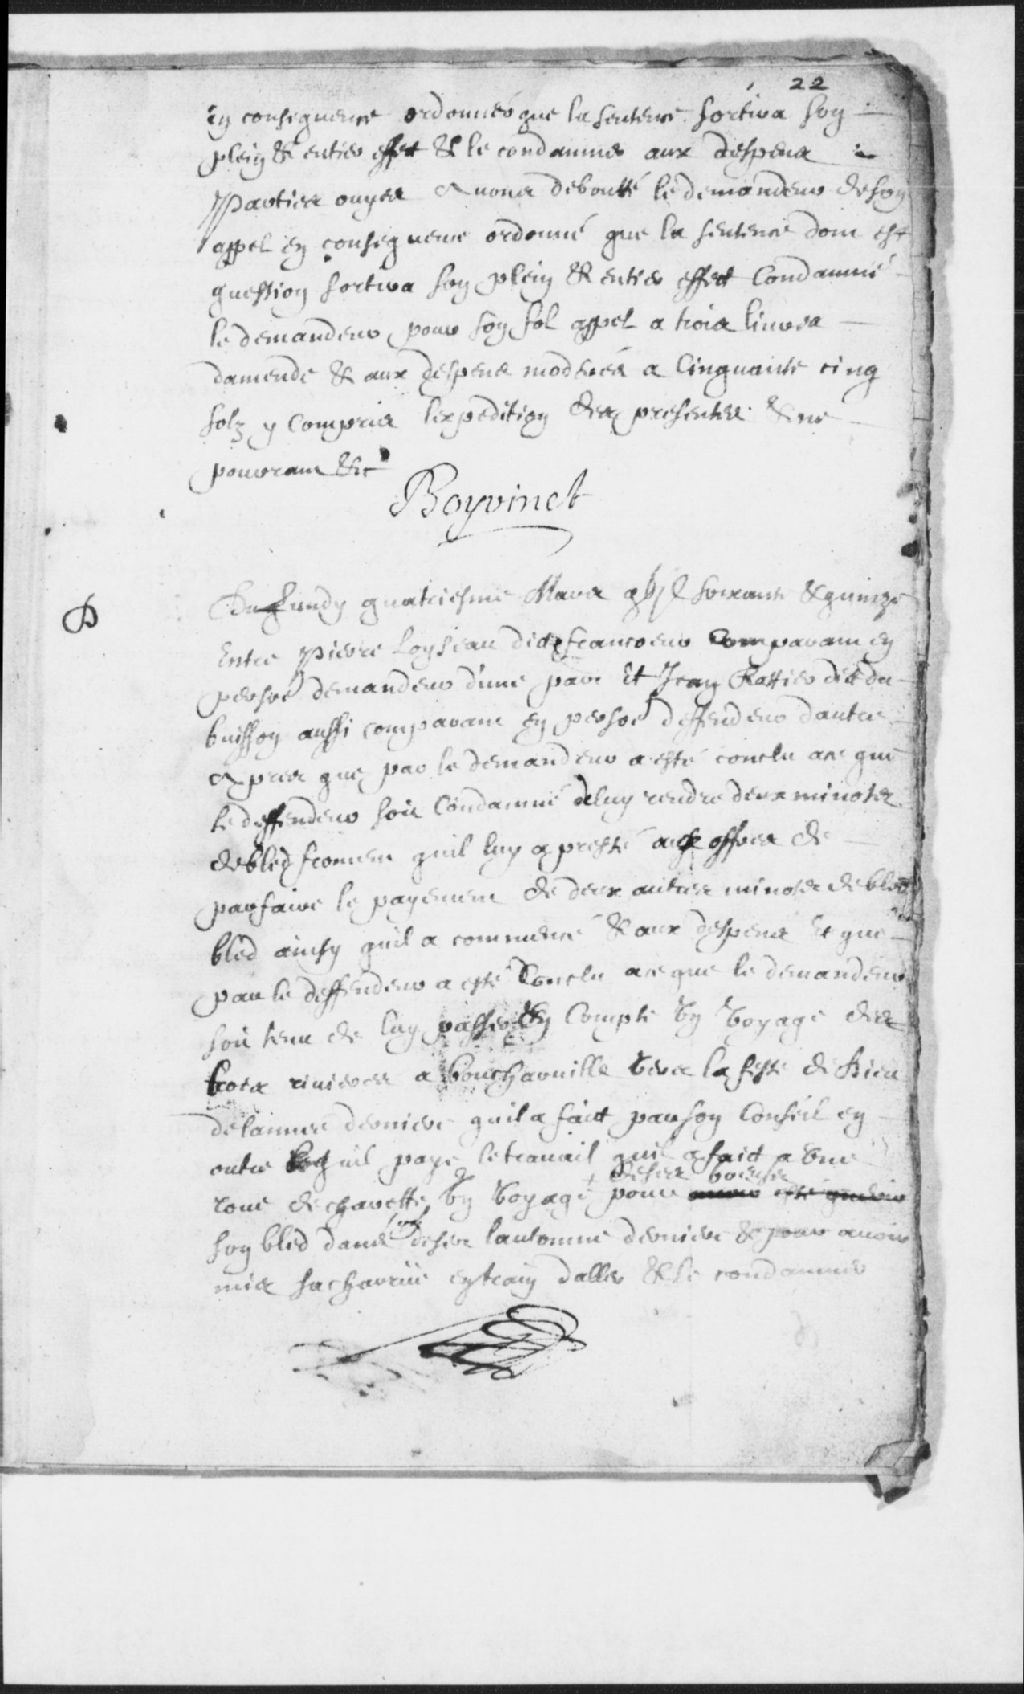 22
en consequence ordonner que la sentence sortira son
plein & entier effet & le condamner aux despens
Parties ouyes Avons deboutté le demandeur de son
appel en consequence ordonné que la sentence dont est
question sortira son plein & entier effect Condamné
le demandeur pour son fol appel a trois livres
damende & aux despens moderés a Cinquante cinq
solz y Compris lexpedition des presentes &
pourront &c
Boyvinet
Du Lundy quatriesme Mars gbjC soixante & quinze
Entre Pierre Loyseau dit francoeur Comparant en
persone demandeur dune part Et Jean Rattier dit du
buisson aussi comparant en persone deffendeur dautre
Apres que par le demandeur a esté conclu a ce que
le deffendeur soit Condamné deluy rendre deux minotz
de bled froment quil luy a presté offres de
parfaire le payement de deux autres minotz de bled
bled ainsy quil a commencé & aux despens Et que
par le deffendeur a esté Conclu a ce que le demandeur
soit tenu de luy passer En Compte Un Voyage des
trois rivieres a boucharville Vers la feste de Dieu
de lannee derniere quil a fait par son Conseil en
outre quil paye le travail quil a fait a Une
roue de charette Un Voyage pour
son bled dans lautomne derniere & pour avoir
mis sa charrüe en train daller & le condamner